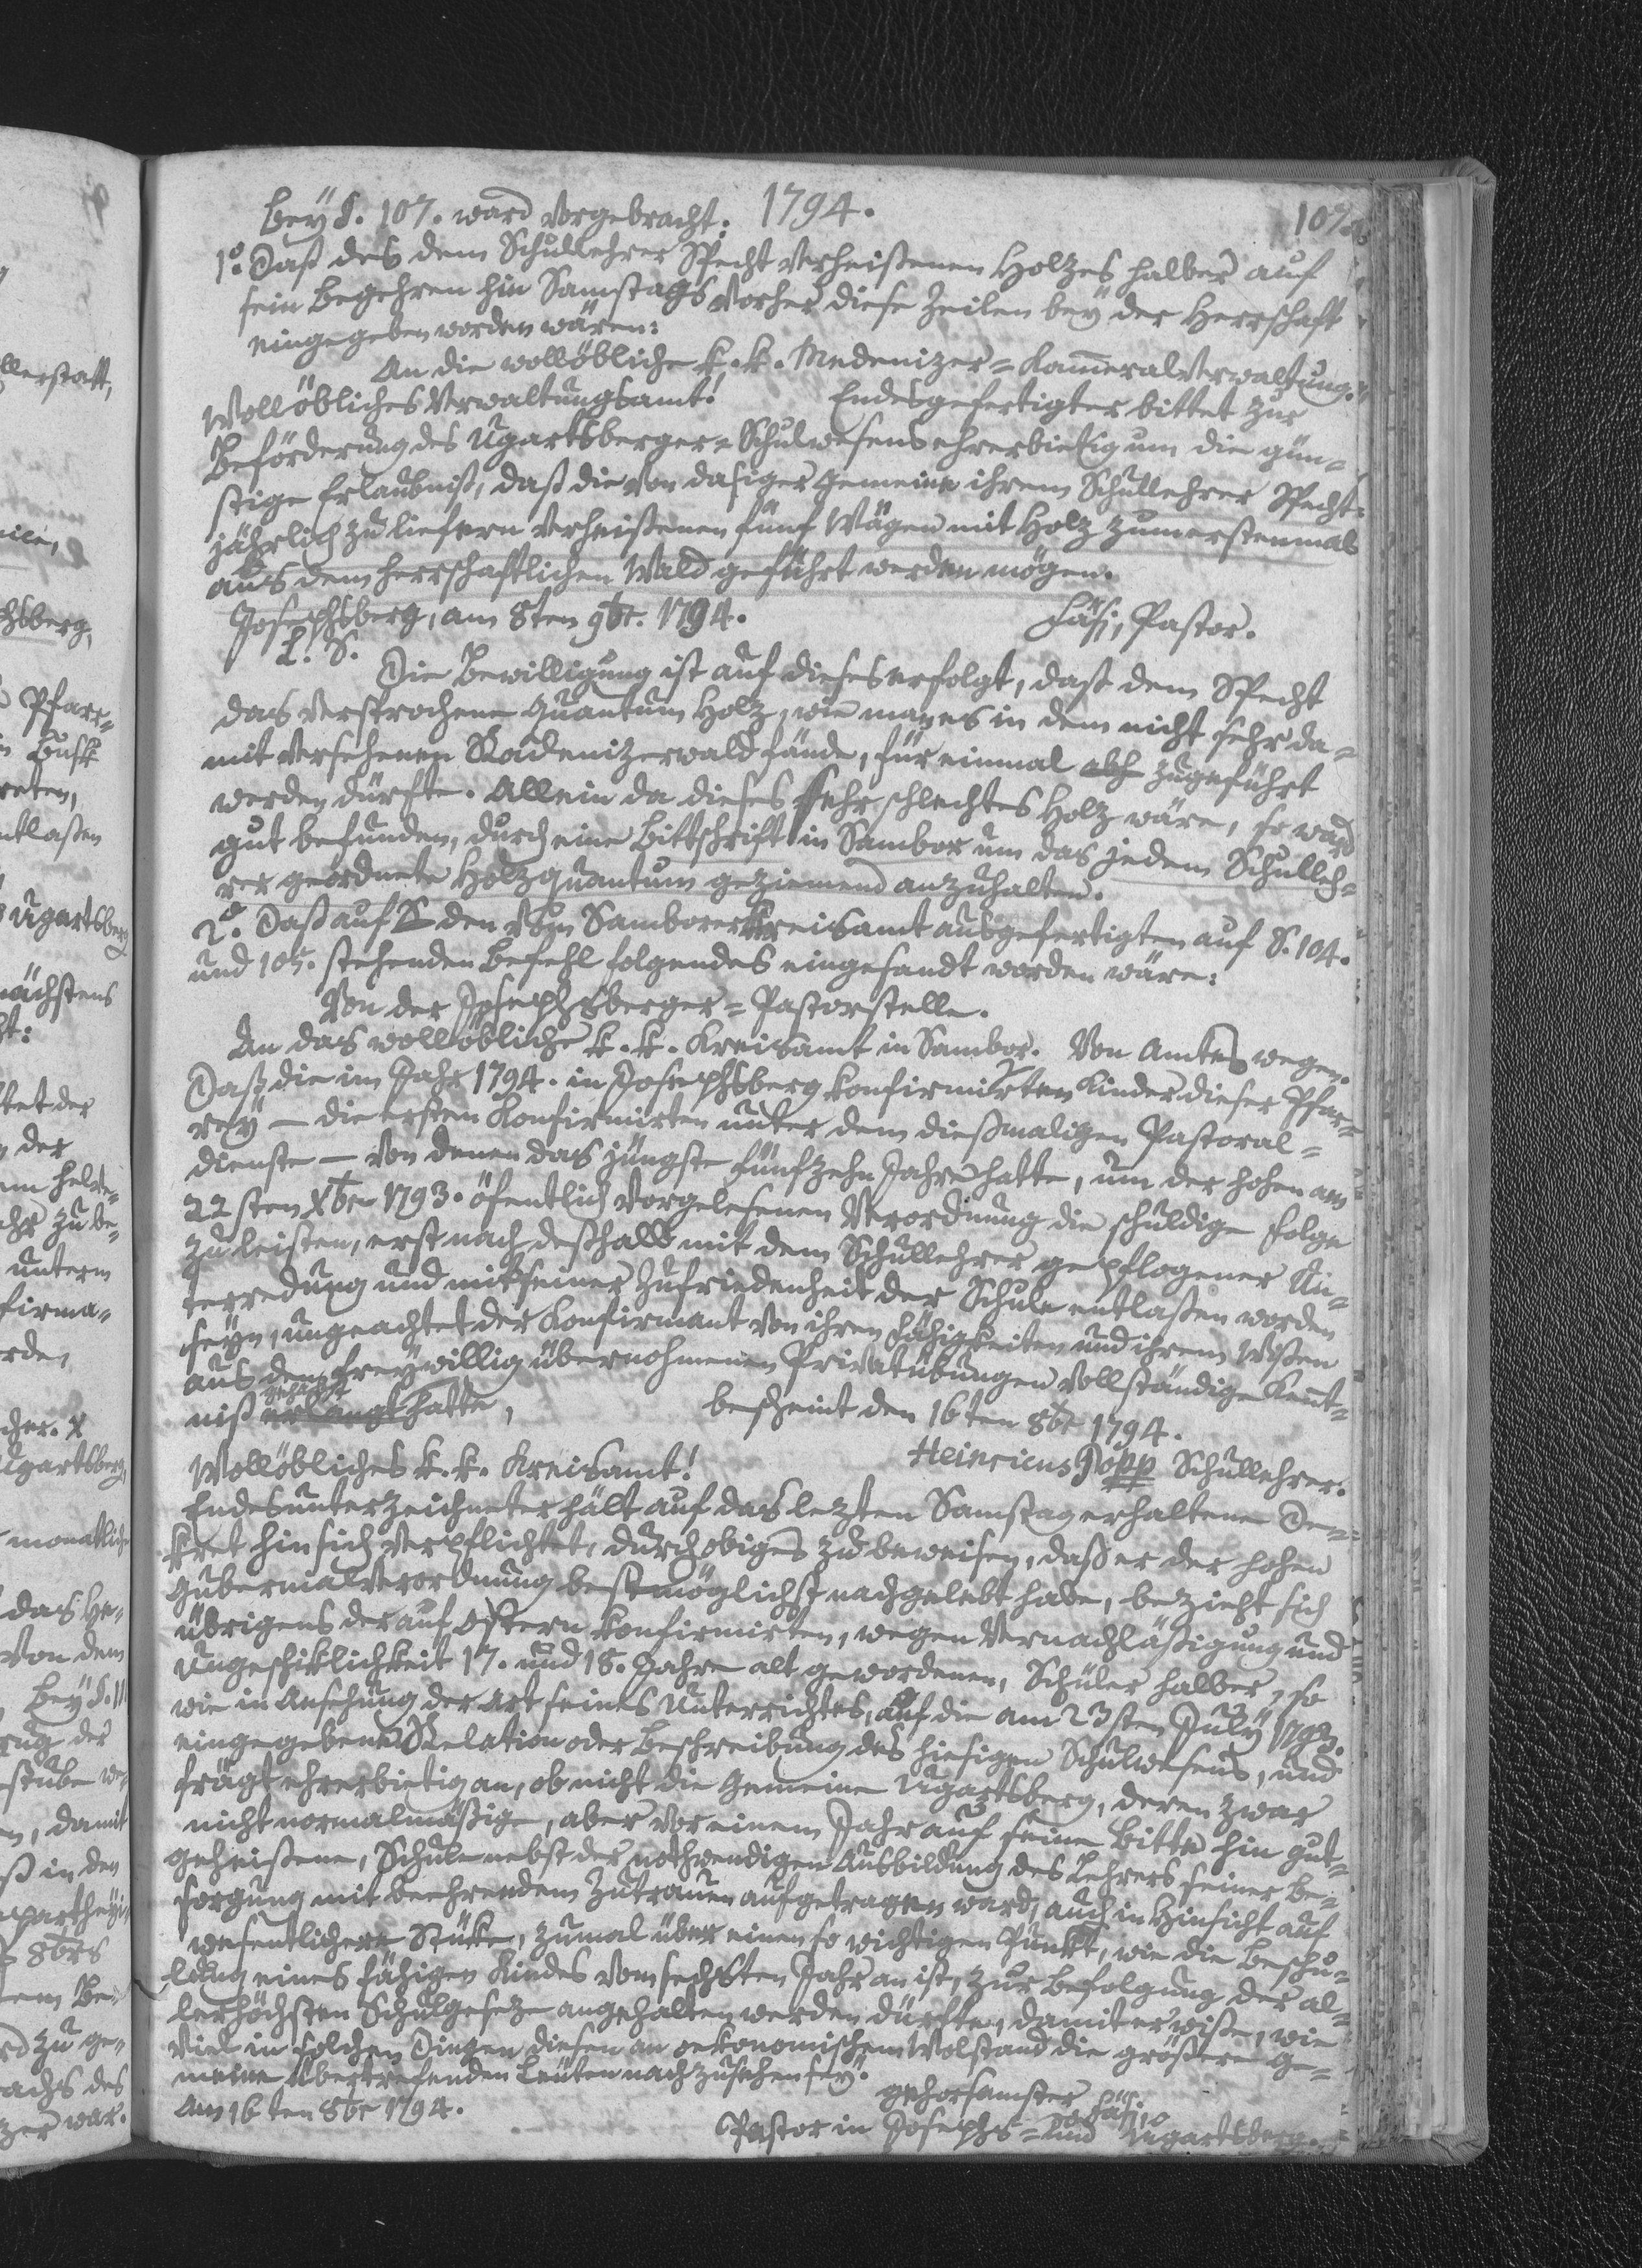 Beÿ S. 107. ward vorgebracht: 1794. 107.
1º. Daß des dem Schullehrer Specht verheißenen Holzes halber auf
sein Begehren hin Samstags vorher diese Zeilen beÿ der Herrschaft
eingegeben worden wären:
An die wollöbliche k. k. Medenizer=Kameralverwaltung.
Wollöbliches Verwaltungsamt! Endesgefertigter bittet zur
Beförderung des Ugartsberger=Schulwesens ehrerbietig um die gün=
stige Erlaubniß, daß die von dasiger Gemeine ihrem Schullehrer Specht
jährlich zu liefern verheißenen fünf Wägen mit Holz zum erstenmal
aus dem herrschaftlichen Wald geführt werden mögen.
Josephsberg, am 8ten 9br. 1794. Fäsi, Pastor.
L. S.
Die Bewilligung ist auf dieses erfolgt, daß dem Specht
das versprochene Quantum Holz, wie man es in dem nicht sehr da=
mit versehenen Radenizerwald fände, für einmal zugeführt
werden dürfte. Allein da dieses sehr schlechtes Holz wäre, so ward
gut befunden, durch eine Bittschrift in Sambor um das jedem Schulleh=
rer geordnete Holzquantum geziemend anzuhalten.
2º. Daß auf den vom Samborerkreisamt ausgefertigten auf S. 104.
und 105. stehenden Befehl folgendes eingesandt worden wäre:
Von der Josephsberger=Pastorstelle.
An das wollöbliche k. k. Kreisamt in Sambor. Von Amtes wegen.
Daß die im Jahr 1794. in Josephsberg konfirmirten Kinder dieser Pfar=
reÿ — die ersten Konfirmirten unter dem dießmaligen Pastoral=
dienste — von denen das jüngste fünfzehn Jahre hatte, um der hohen am
22sten Xbr 1793. öfentlich vorgelesenen Verordnung die schuldige Folge
zu leisten, erst nach deßhalb mit dem Schullehrer gepflogener Un=
terredung und mit seiner Zufriedenheit der Schule entlaßen worden
seÿn, ungeachtet der Konfirmant von ihren Fähigkeiten und ihrem Wißen
aus den freÿwillig übernohmenen Privatübungen vollständige Kennt=
niß gehabt erlangt hatte, bescheint den 16ten 8br 1794.
Heinricus Popp Schullehrer.
Wollöbliches k. k. Kreisamt!
Endesunterzeichneter hält auf das lezten Samstag erhaltene De=
kret hin sich verpflichtet, durch obiges zu beweisen, daß er der hohen
Gubernialverordnung bestmöglichst nachgelebt habe, bezieht sich
übrigens der auf Ostern konfirmirten, wegen Vernachläßigung und
Ungeschiklichkeit 17. und 18. Jahre alt gewordenen, Schüler halber, so
wie in Ansehung der Art seines Unterrichtes, auf die am 23sten Julÿ 1793.
eingegebene Relation oder Beschreibung des hiesigen Schulwesens, und
frägt ehrerbietig an, ob nicht die Gemeine Ugartsberg, deren zwar
nicht normalmäßige, aber vor einem Jahr auf seine Bitte hin gut=
geheißene, Schule nebst der nothwendigen Ausbildung des Lehrers seiner Be=
sorgung mit beehrendem Zutrauen aufgetragen ward, auch in Hinsicht auf
wesentlichere Stüke, zumal über einen so wichtigen Punkt, wie die Beschu=
lung eines fähigen Kindes vom sechsten Jahr an ist, zur Befolgung der al=
lerhöchsten Schulgeseze angehalten werden dürfte, damit er wiße, wie
viel in solchen Dingen diesen an oekonomischem Wolstand die größere Ge=
meine übertrefenden Leuten nachzusehen seÿ.
Am 16ten 8br 1794. gehorsamster Fäsi
Pastor in Josephs= und Ugartsberg.